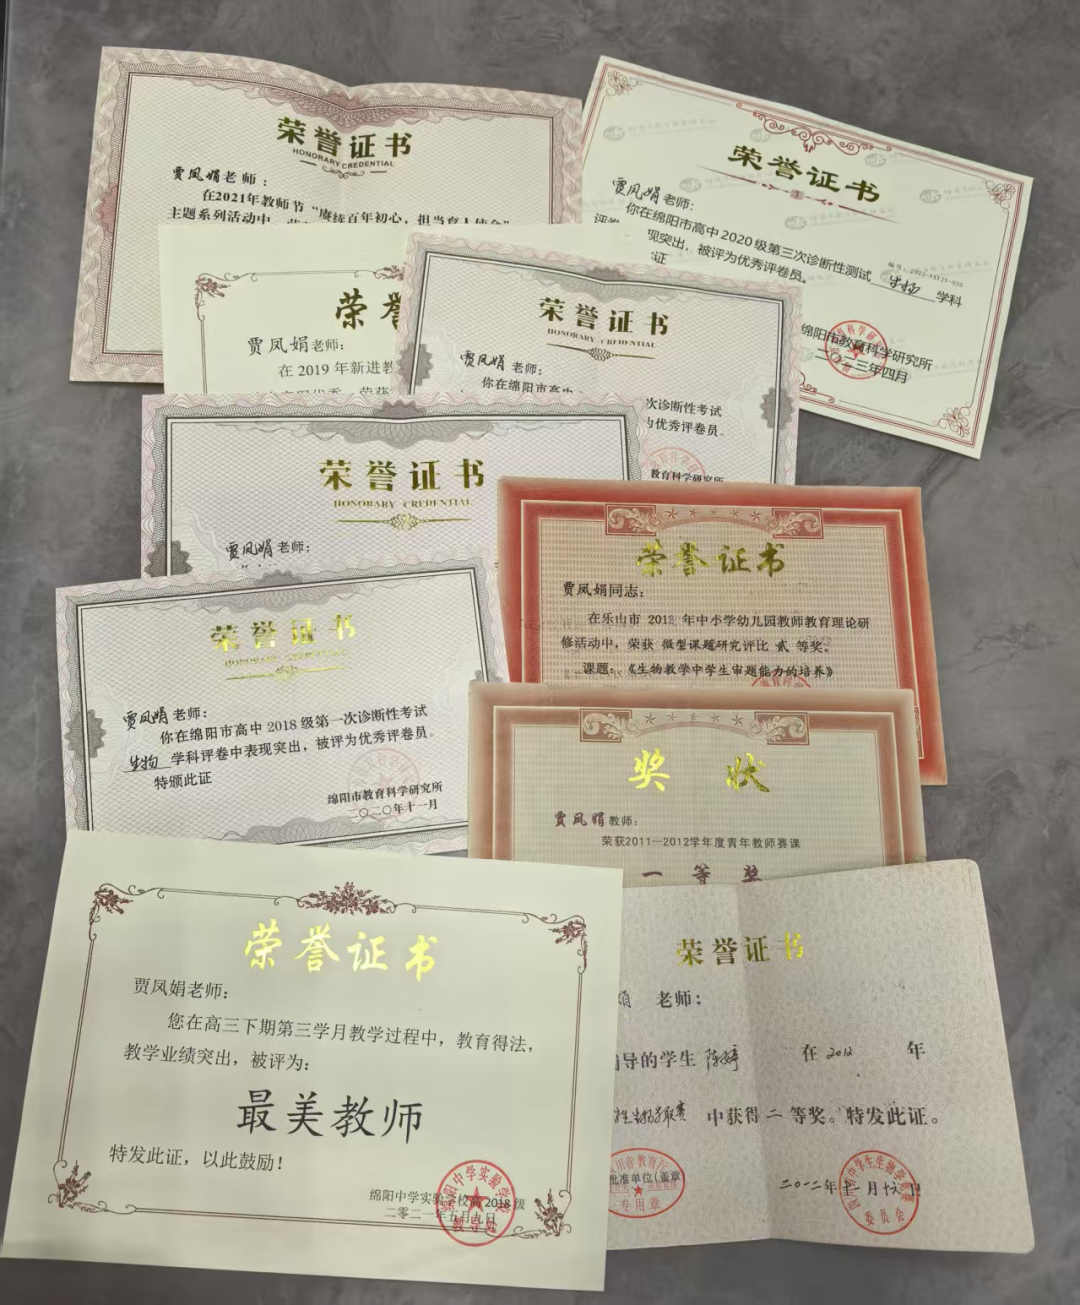 荣誉证书
HONORARY CREDENTIAL
贾凤娟老师：
在2021年教师节“赓续百年初心，担当育人使命”
主题系列活动中，
荣誉证书
贾凤娟老师：
你在绵阳市高中2020级第三次诊断性测试 生物 学科
评卷
现突出，被评为优秀评卷员。
证
绵阳市教育科学研究所
二〇二三年四月
荣
贾凤娟老师：
在 2019 年新进教
荣誉证书
HONORARY CREDENTIAL
贾凤娟 老师：
你在绵阳市高中
次诊断性考试
为优秀评卷员。
教育科学研究所
荣誉证书
HONORARY CREDENTIAL
贾凤娟 老师：
荣誉证书
贾凤娟同志：
在乐山市 2012 年中小学幼儿园教师教育理论研
修活动中，荣获 微型课题研究评比 贰 等奖。
课题：《生物教学中学生审题能力的培养》
荣誉证书
HONORARY CREDENTIAL
贾凤娟 老师：
你在绵阳市高中 2018 级第一次诊断性考试
生物 学科评卷中表现突出，被评为优秀评卷员。
特颁此证
绵阳市教育科学研究所
二〇二〇年十一月
奖状
贾凤娟教师：
荣获2011—2012学年度青年教师赛课
一等奖
荣誉证书
贾凤娟老师：
您在高三下期第三学月教学过程中，教育得法，
教学业绩突出，被评为：
最美教师
特发此证，以此鼓励！
绵阳中学实验学校高 2018 级
二零二一年五月九日
绵阳中学实验学校
教导处
荣誉证书
娟 老师：
辅导的学生 陈婷 在 2012 年
生物学联赛 中获得 二 等奖。特发此证。
川省教育厅
批准单位(盖章
专用章
中学生生物学竞赛
委员会
二〇一二年十一月十六日